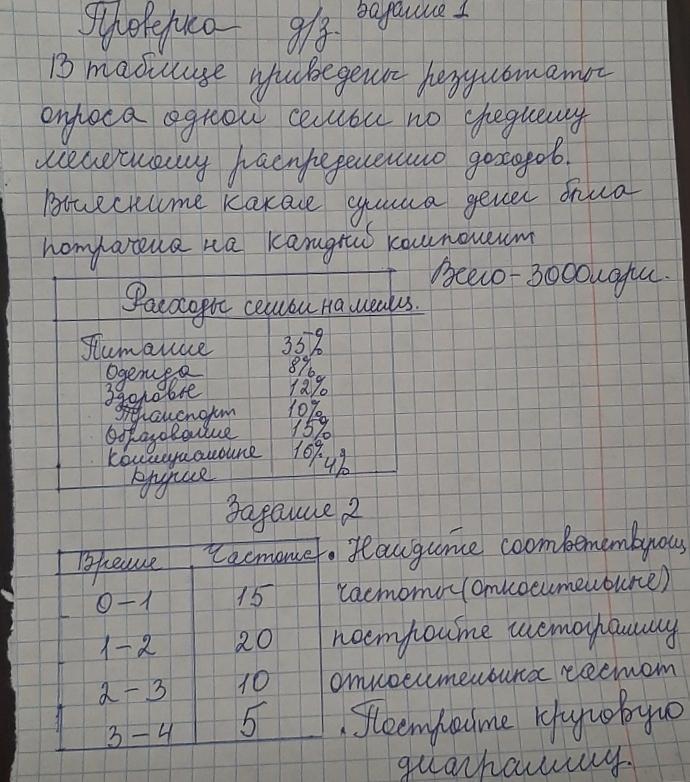 Проверка д/з. Задание 1
В таблице приведены результаты
опроса одной семьи по среднему
месячному распределению доходов.
Выясните какая сумма денег была
потрачена на каждый компонент
Всего - 3000 лари.
Расходы семьи на месяц.
Питание 35%
Одежда 8%
Здоровье 12%
Транспорт 10%
Образование 15%
Коммунальные 16%
Другие 4%
Задание 2
Время Частота • Найдите соответствующ
0-1 15 частоты (относительные)
1-2 20 постройте гистограмму
2-3 10 относительных частот
3-4 5 . Постройте круговую
диаграмму.